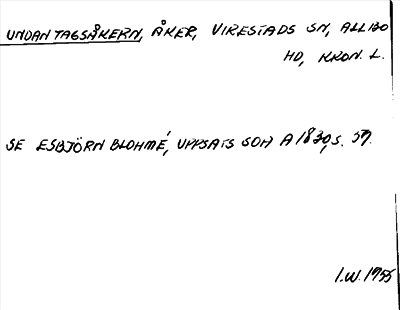 UNDANTAGSÅKERN, ÅKER, VIRESTADS SN, ALLBO
HD, KRON. L.
SE ESBJÖRN BLOHMÉ, UPPSATS SOM A 1830, S. 57.
I.W. 1955